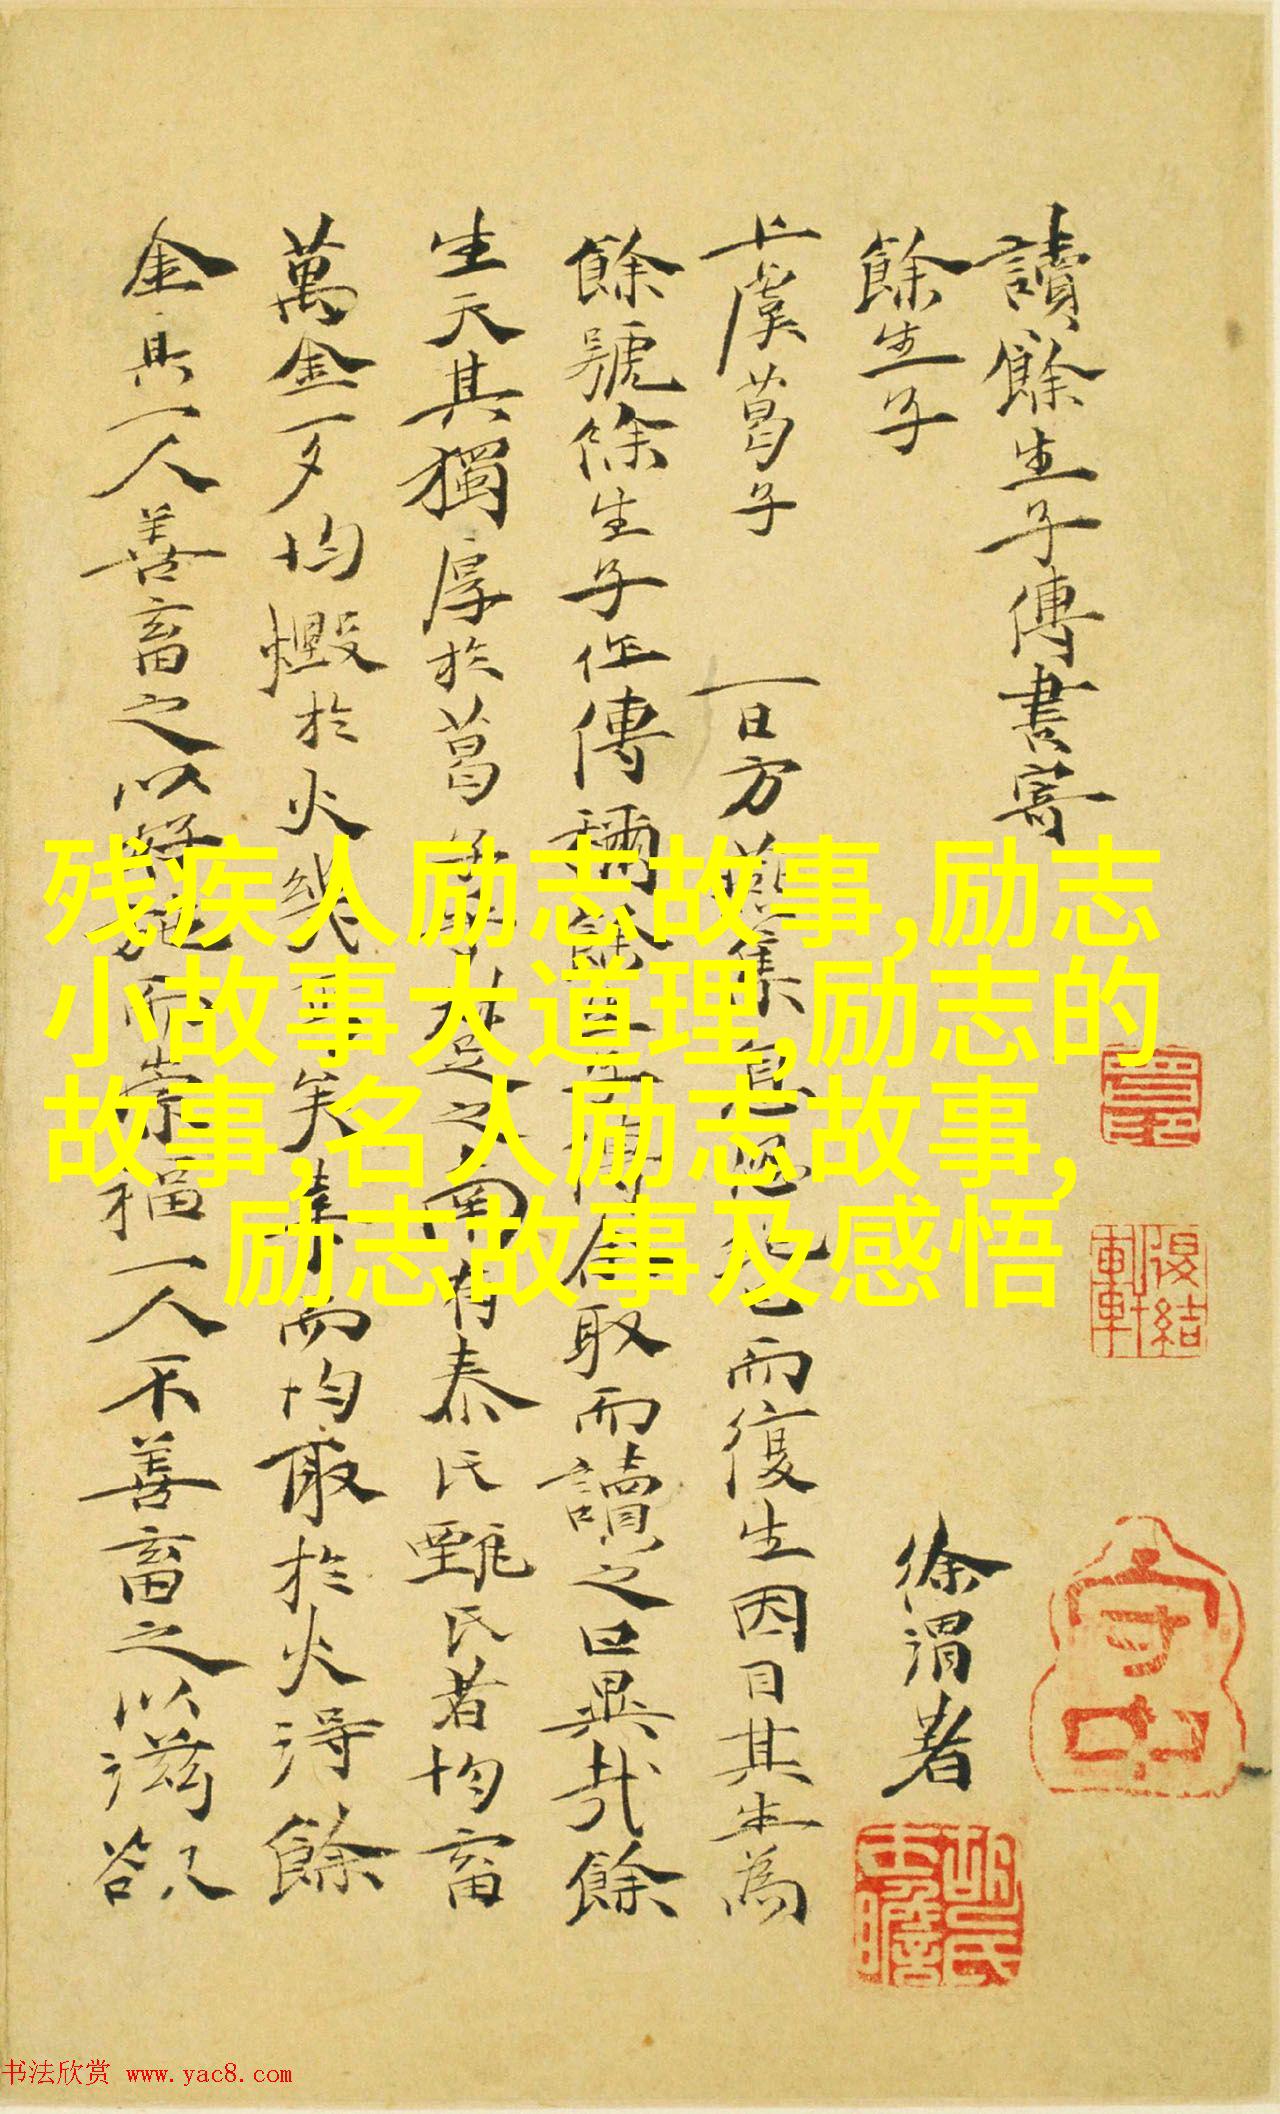 讀餘生子傳書寄
餘生子
徐渭著
上虞葛子 一日方 集 已而復生因目其生為
餘號餘生子 傳稱 取而讀之曰異哉餘
生天其獨厚於葛子 楚之南有秦氏甄氏者均畜
萬金一夕均燬於火 矣 而均取於火得餘
金其一人善畜之以好施而崇福一人不善畜之以滋欲
守中
残疾人励志故事,励志
小故事大道理,励志的
故事,名人励志故事,
励志故事及感悟
书法欣赏 www.yac8.com